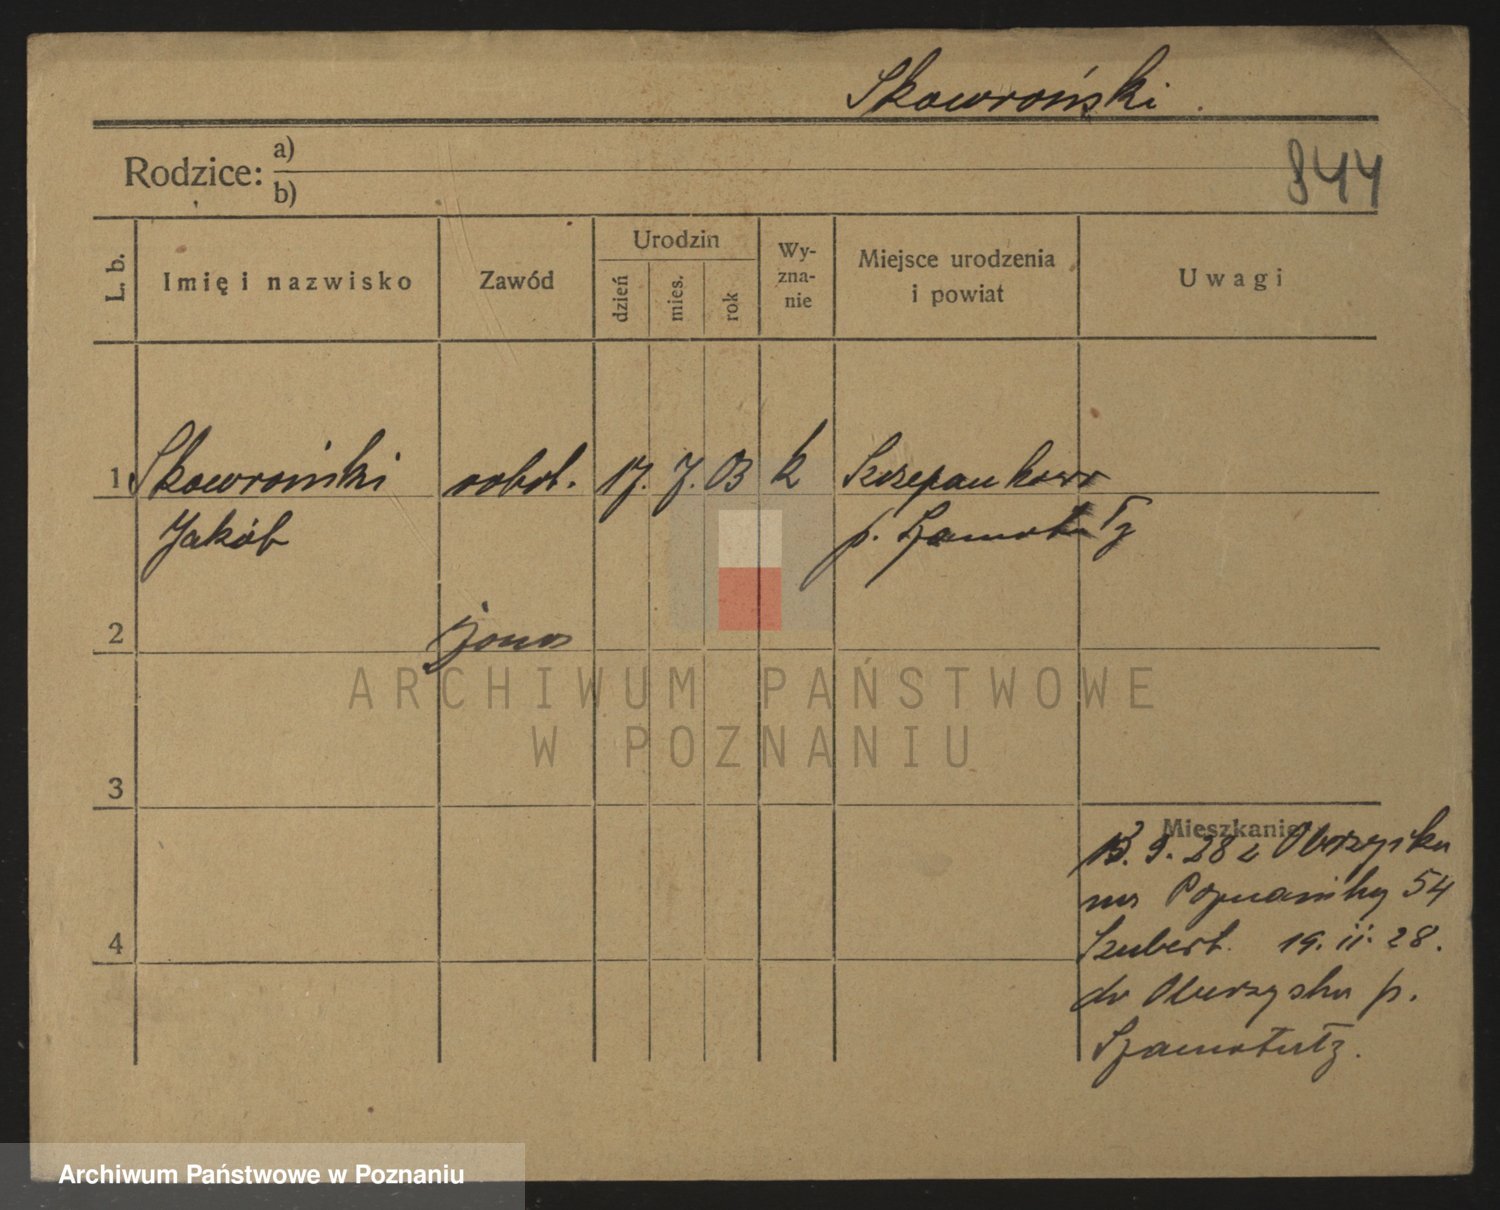 Skowroński
Rodzice: a)
b)
844
L. b.
Imię i nazwisko
Zawód
Urodzin
dzień
mies.
rok
Wy-
zna-
nie
Miejsce urodzenia
i powiat
Uwagi
1 Skowroński robot. 17. 7. 03 k Szczepankowo
Jakób p. Szamotuły
2 żona
ARCHIWUM PAŃSTWOWE
W POZNANIU
3
Mieszkanie
9. 28 z Obrzycka
54
4
Szubert. 19. 11. 28.
do Obrzycka p.
Szamotuły.
Archiwum Państwowe w Poznaniu